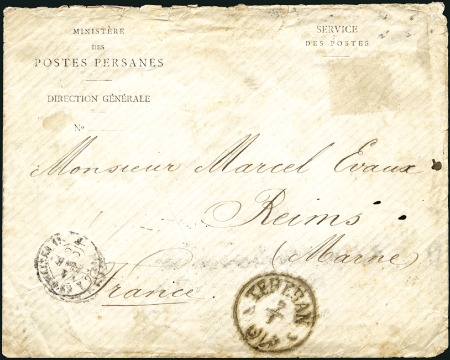 MINISTÈRE
DES
POSTES PERSANES
DIRECTION GÉNÉRALE
No
SERVICE
DES POSTES
Monsieur Marcel Evaux
Reims
(Marne)
France
TEHERAN